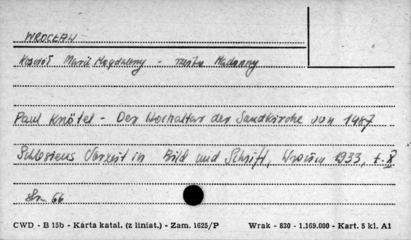 WROCŁAW
Kościół Marii Magdaleny - rzeźba Madonny
Paul Knötel - Der Hochaltar der Sandkirche von 1487
Schlesiens Vorzeit in Bild und Schrift, Wrocław 1933, t. X
Str. 66
CWD - B 15b - Karta katal. (z liniat.) - Zam. 1625/P Wrak - 830 - 1.169.000 - Kart. 5 kl. A1